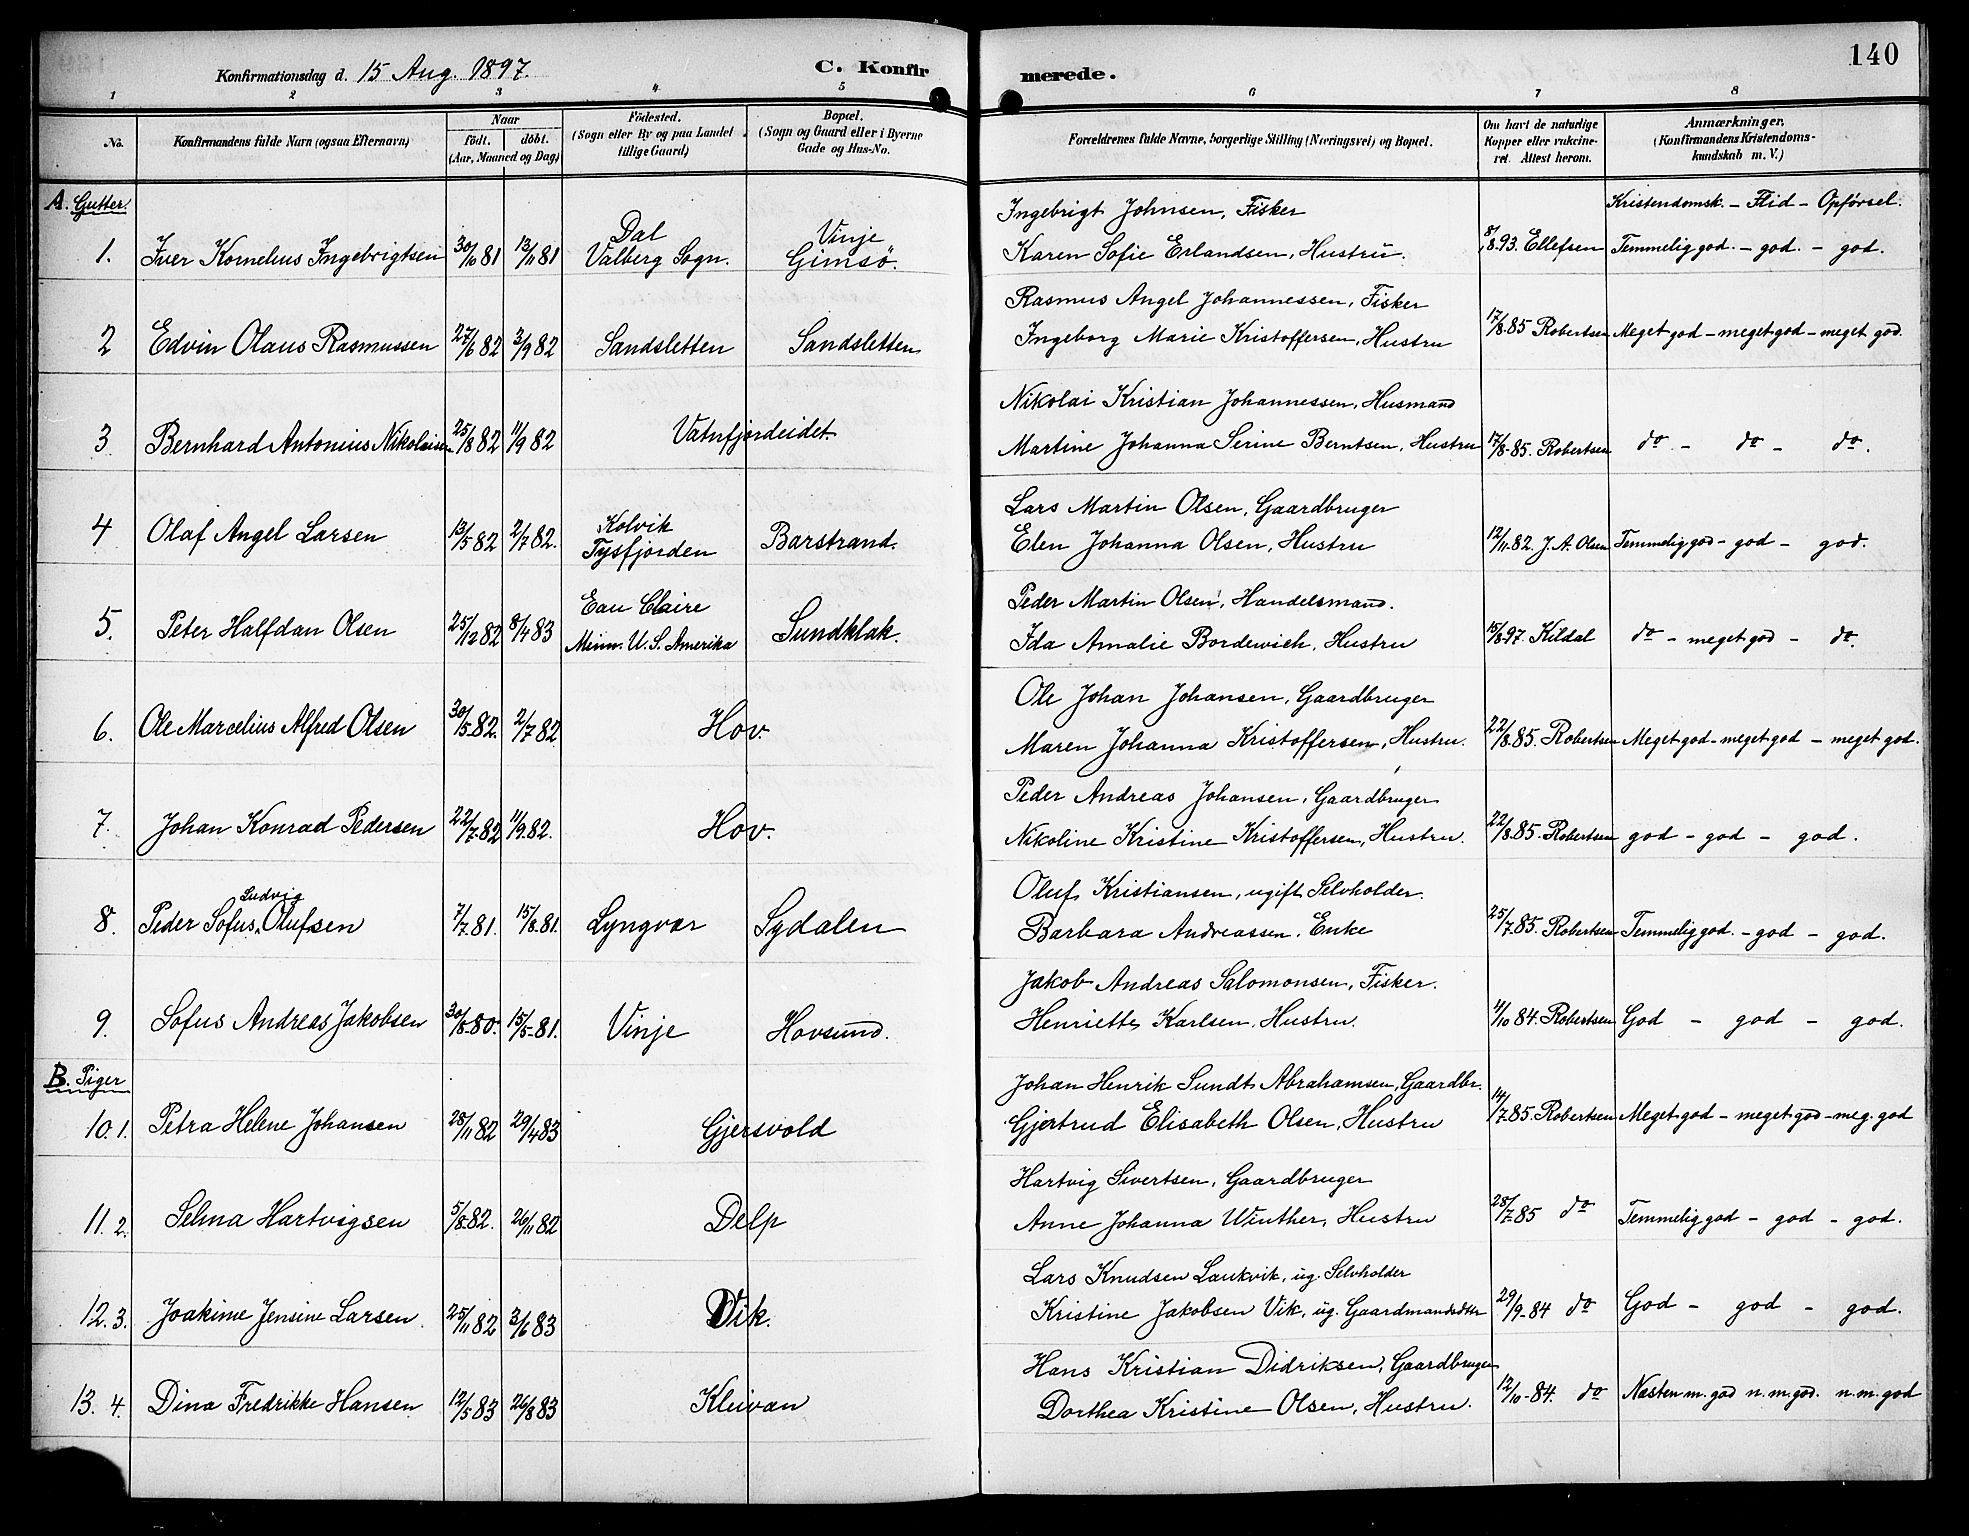 140
Konfirmationsdag d. 15 Aug. 1897.
C. Konfirmerede.
1 2 3 4 5 6 7 8
No.
Konfirmandens fulde Navn (ogsaa Efternavn)
Naar
født. døbt.
(Aar, Maaned og Dag)
Fødested.
(Sogn eller By og paa Landet
tillige Gaard)
Bopæl.
(Sogn og Gaard eller i Byerne
Gade og Hus-No.
Forældrenes fulde Navne, borgerlige Stilling (Næringsvei) og Bopæl.
Om havt de naturlige
Kopper eller vakcineret. Attest herom.
Anmærkninger.
(Konfirmandens Kristendoms-
kundskab m. V.)
A. Gutter.
Kristendomsk. - Flid - Opførsel.
1. Iver Kornelius Ingebrigtsen 30/10 81 13/11 81 Dal Valberg Sogn. Vinje Gimsö.
Ingebrigt Johnsen, Fisker
Karen Sofie Erlandsen, Hustru. 8/8 93. Ellefsen Temmelig god. - god. - god.
2 Edvin Olaus Rasmussen 27/6 82 3/9 82 Sandsletten Sandsletten
Rasmus Angel Johannessen, Fisker
Ingeborg Marie Kristoffersen, Hustru 17/8. 85 Robertsen Meget god - meget god - meget god.
3. Bernhard Antonius Nikolaisen 25/8 82 11/9 82 Vatnfjordeidet.
Nikolai Kristian Johannessen, Husmand
Martine Johanna Serine Berntsen, Hustru 17/8-85. Robertsen do - do - do.
4 Olaf Angel Larsen 13/5 82 2/7 82. Kolvik Tysfjorden Barstrand.
Lars Martin Olsen, Gaardbruger
Elen Johanna Olsen, Hustru 12/11. 82. J. A. Olsen Temmelig god - god - god.
5. Peter Halfdan Olsen 25/12 82 8/4 83 Eau Claire Minn. U. S. Amerika Sundklak.
Peder Martin Olsen, Handelsmand.
Ida Amalie Bordewich, Hustru 15/8. 97. Kildal do - meget god - do.
6. Ole Marcelius Alfred Olsen 30/5. 82. 2/7 82 Hov.
Ole Johan Johansen, Gaardbruger
Maren Johanna Kristoffersen, Hustru. 22/8. 85. Robertsen Meget god - meget god - meget god.
7. Johan Konrad Pedersen 22/7. 82 11/9. 82. Hov.
Peder Andreas Johansen, Gaardbruger
Nikoline Kristine Kristoffersen, Hustru. 22/8. 85. Robertsen god - god - god.
8. Peder Sofus Ludvig Olufsen 7/7. 81. 15/8. 81. Lyngvær Sydalen
Oluf Kristiansen, ugift Selvholder.
Barbara Andreassen, Enke 25/7. 85. Robertsen Temmelig god. - god - god.
9. Sofus Andreas Jakobsen 30/8-80. 15/5-81. Vinje Hovsund.
Jakob Andreas Salomonsen, Fisker.
Henriette Karlsen, Hustru. 4/10 84. Robertsen God - god - god.
B. Piger
10. 1. Petra Helene Johansen 28/11 82 29/4 83 Gjersvold
Johan Henrik Sundt Abrahamsen, Gaardbr.
Gjertrud Elisabeth Olsen, Hustru 14/7. 85. Robertsen Meget god - meget god - meg. god
11. 2. Selma Hartvigsen 5/8. 82. 26/11 82 Delp
Hartvig Sivertsen, Gaardbruger
Anne Johanna Winther, Hustru 28/7. 85 do Temmelig god - god - god.
12. 3. Joakime Jensine Larsen. 25/11 82 3/6 83 Vik.
Lars Knudsen Laukvik, ug. Selvholder
Kristine Jakobsen Vik, ug. Gaardmandsdtr 29/9-84 do God - god - god.
13. 4. Dina Fredrikke Hansen 12/5 83 26/8 83 Kleivan
Hans Kristian Didriksen, Gaardbruger
Dorthea Kristine Olsen, Hustru. 12/10-84. do Næsten m. god n. m. god. n. m. god